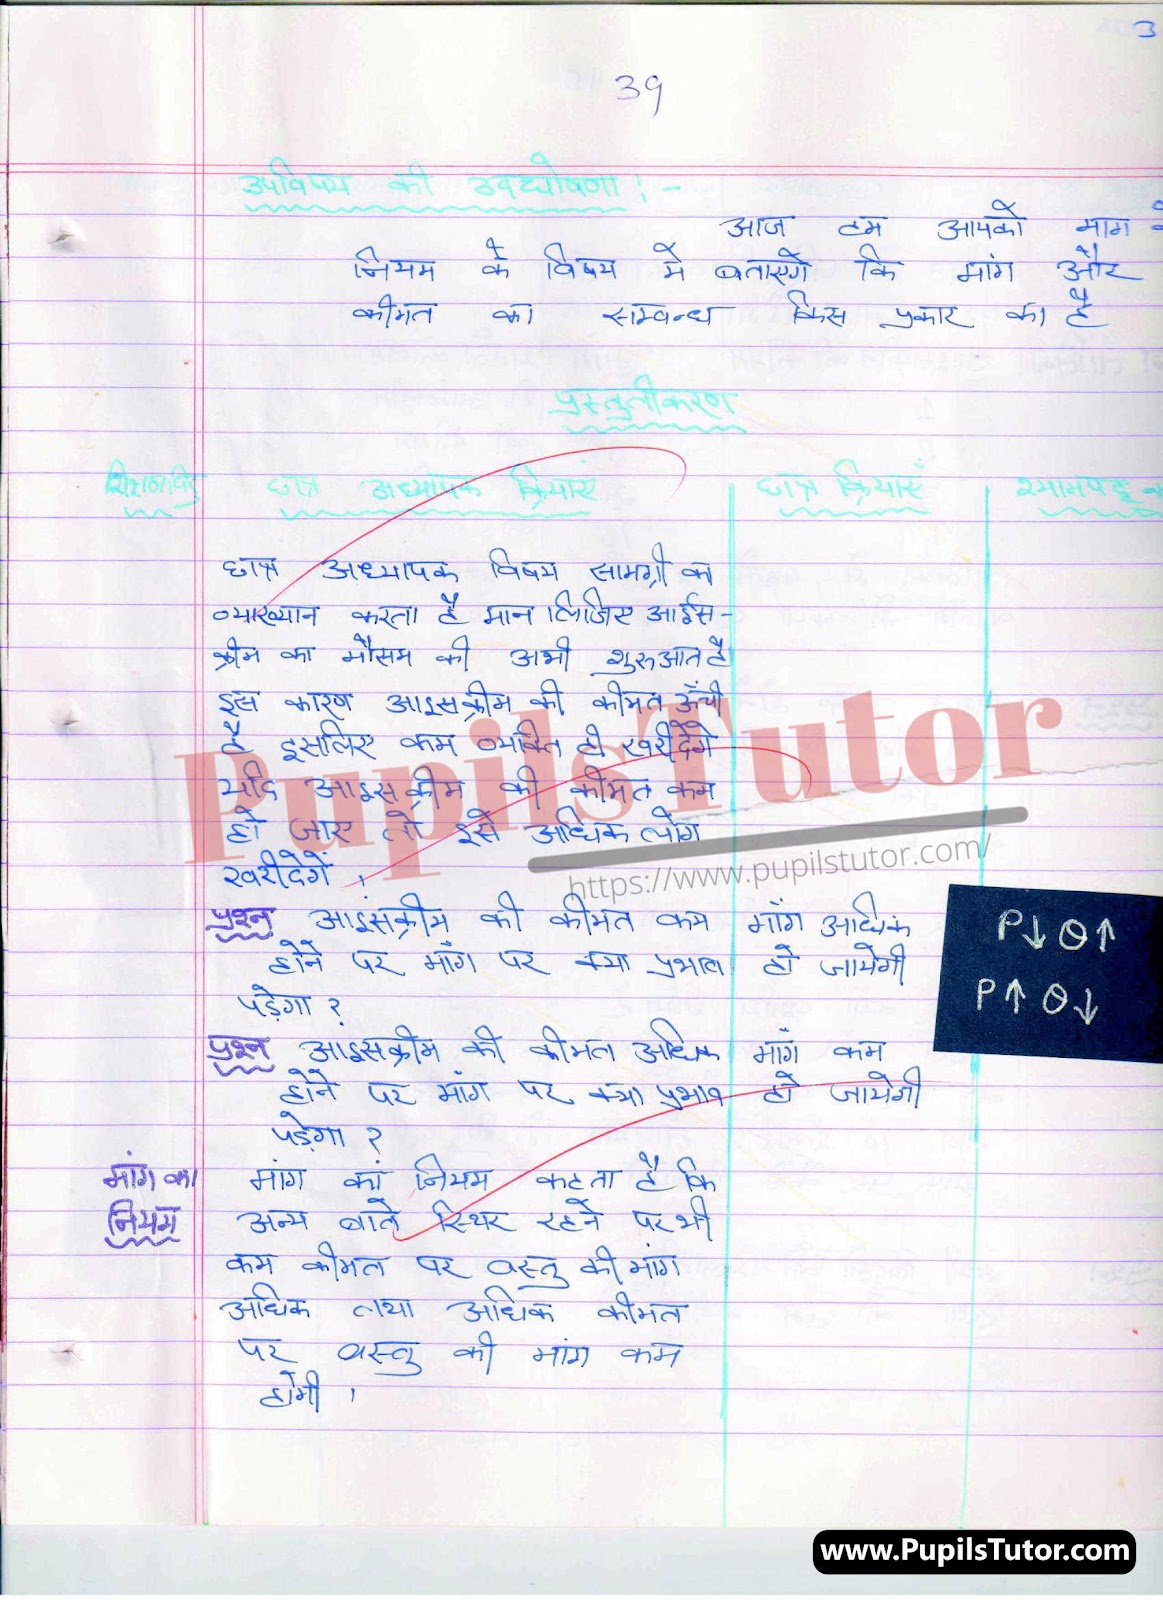 3
39
उपविषय की उदघोषणा :-
आज हम आपको मांग के
नियम के विषय में बताएगें कि मांग और
कीमत का सम्बन्ध किस प्रकार का है
प्रस्तुतीकरण
छात्र अध्यापक क्रियाएं
छात्र क्रियाएँ
श्यामपट्ट
छात्र अध्यापक विषय सामग्री का
व्याख्यान करता है मान लिजिए आईस-
क्रीम का मौसम की अभी शुरुआत है
इस कारण आइसक्रीम की कीमत ऊँची
है इसलिए कम व्यक्ति ही खरीदेंगे
यदि आइसक्रीम की कीमत कम
हो जाए तो इसे अधिक लोग
खरीदेगें ।
प्रश्न आइसक्रीम की कीमत कम
होने पर माँग पर क्या प्रभाव
पड़ेगा ?
माँग अधिक
हो जायेगी
P↓ Q↑
P↑ Q↓
प्रश्न आइसक्रीम की कीमत अधिक
होने पर मांग पर क्या प्रभाव
पड़ेगा ?
माँग कम
हो जायेगी
मांग का
नियम
मांग का नियम कहता है कि
अन्य बाते स्थिर रहने पर भी
कम कीमत पर वस्तु की मांग
अधिक तथा अधिक कीमत
पर वस्तु की मांग कम
होगी ।
PupilsTutor
https://www.pupilstutor.com/
www.PupilsTutor.com